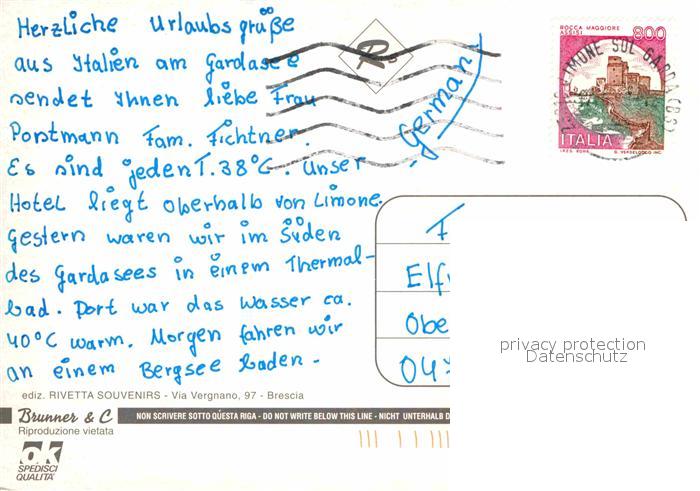 Herzliche Urlaubsgrüße
aus Italien am Gardasee
sendet Ihnen liebe Frau
Porstmann Fam. Fichtner.
Es sind jeden T. 38°C. Unser
Hotel liegt oberhalb von Limone.
Gestern waren wir im Süden
des Gardasees in einem Thermal-
bad. Dort war das Wasser ca.
40°C warm. Morgen fahren wir
an einem Bergsee baden.
Germany
ROCCA MAGGIORE
ASSISI
800
ITALIA
I.P.Z.S. ROMA
LIMONE SUL GARDA (BS)
F
Elf
Obe
04
privacy protection
Datenschutz
ediz. RIVETTA SOUVENIRS - Via Vergnano, 97 - Brescia
Brunner & C
Riproduzione vietata
NON SCRIVERE SOTTO QUESTA RIGA - DO NOT WRITE BELOW THIS LINE - NICHT UNTERHALB D
ok
SPEDISCI
QUALITA'